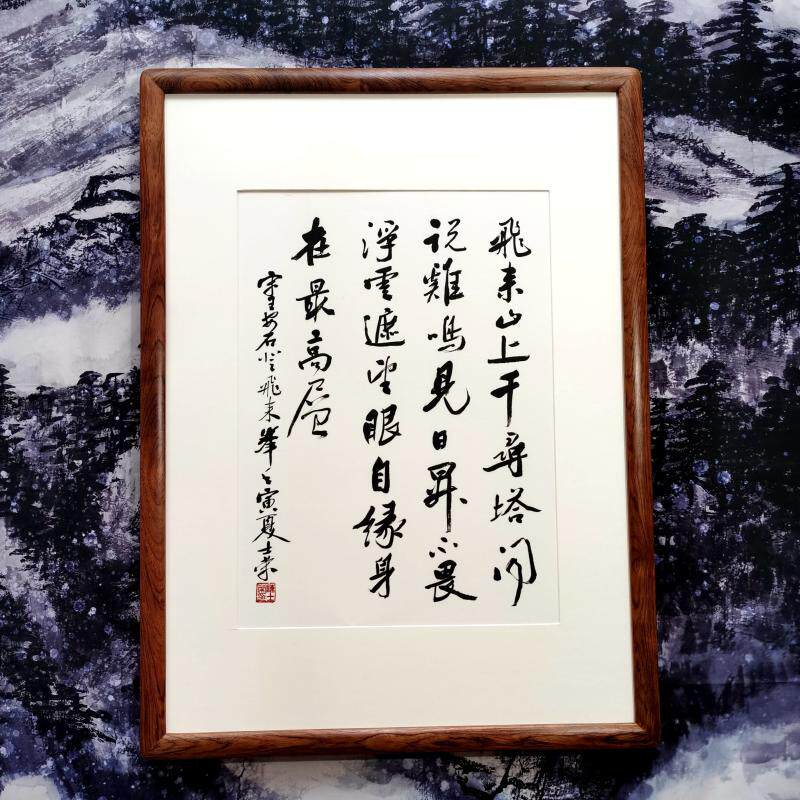 飛来山上千尋塔闻
说雞鳴見日昇不畏
浮雲遮望眼自緣身
在最高层
宋王安石登飛来峯壬寅夏士荣